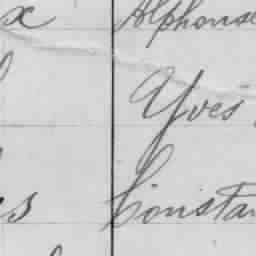 x Alphonse
Yves
s Constan